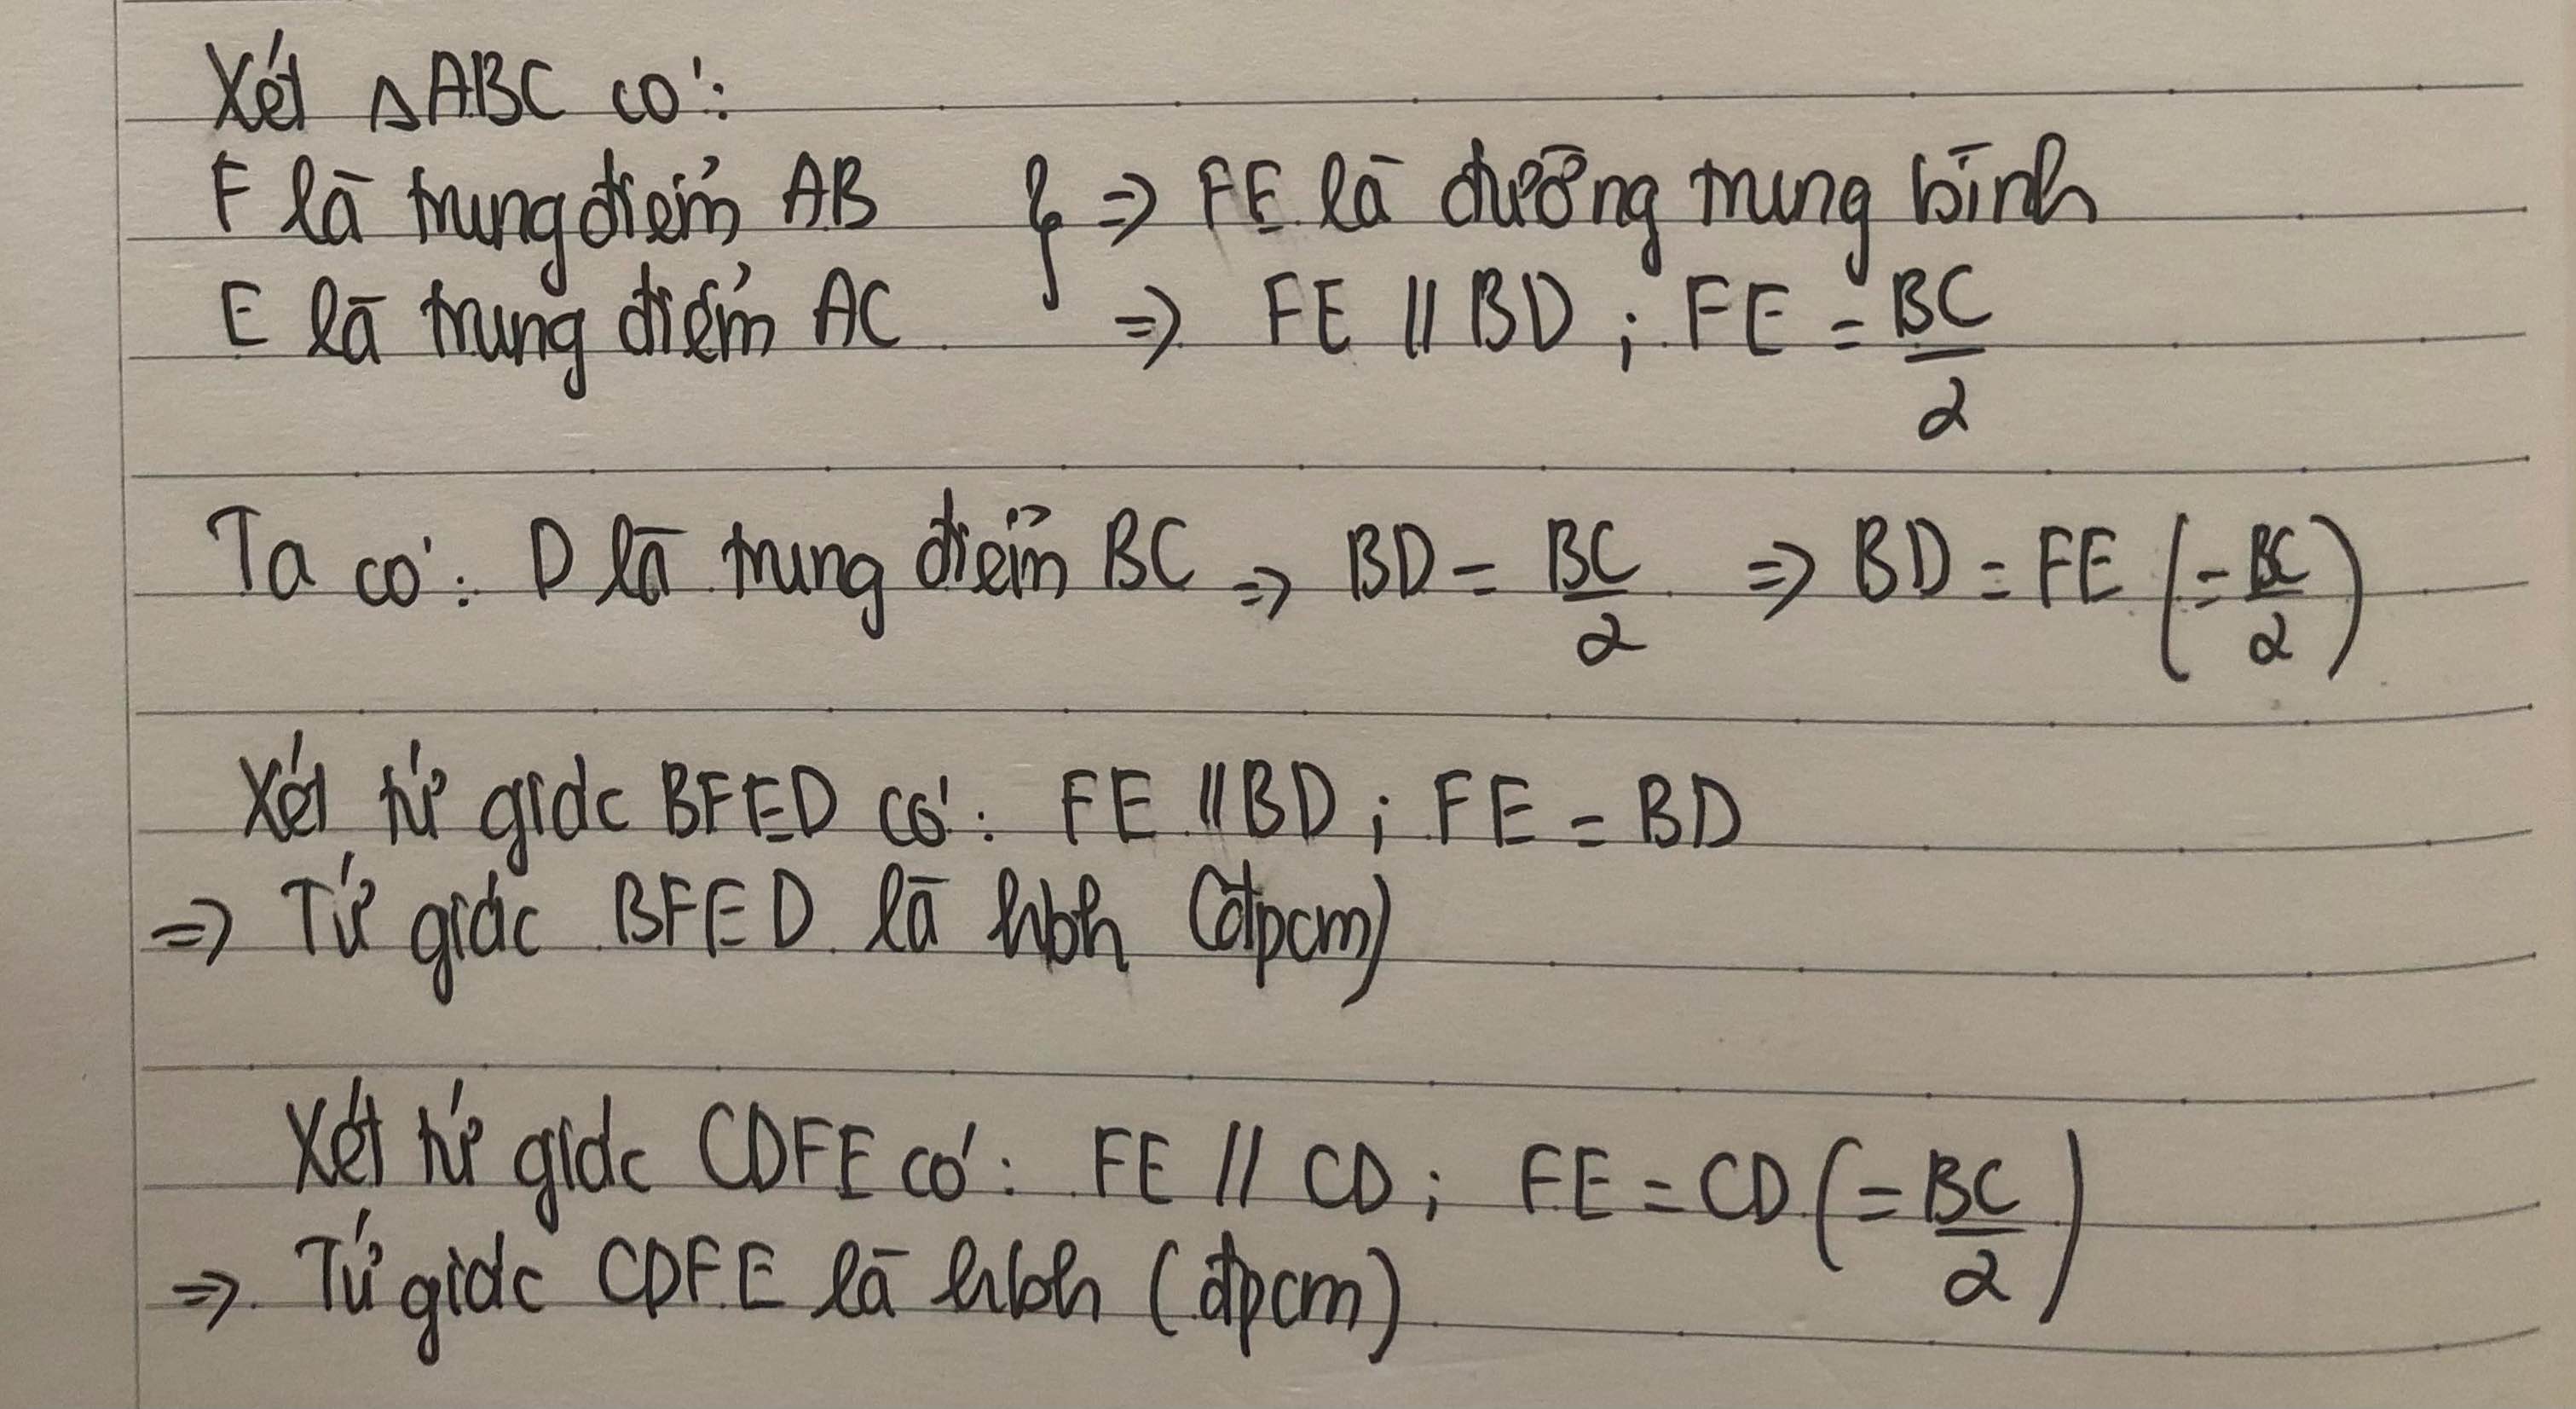 Xét △ABC có:
F là trung điểm AB } => FE là đường trung bình
E là trung điểm AC => FE // BD ; FE = BC/2
Ta có: D là trung điểm BC => BD = BC/2 => BD = FE (= BC/2)
Xét tứ giác BFED có: FE // BD ; FE = BD
=> Tứ giác BFED là hbh (đpcm)
Xét tứ giác CDFE có: FE // CD ; FE = CD (= BC/2)
=> Tứ giác CDFE là hbh (đpcm)